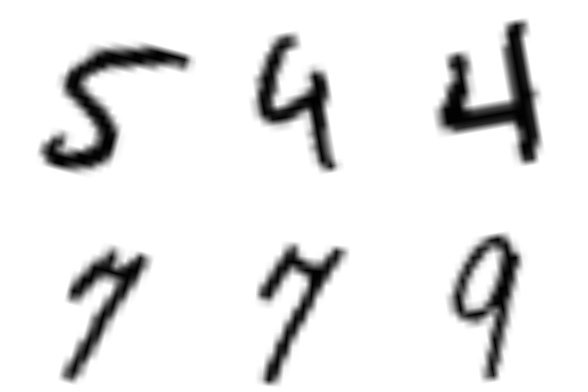 5 9 4
7 7 9